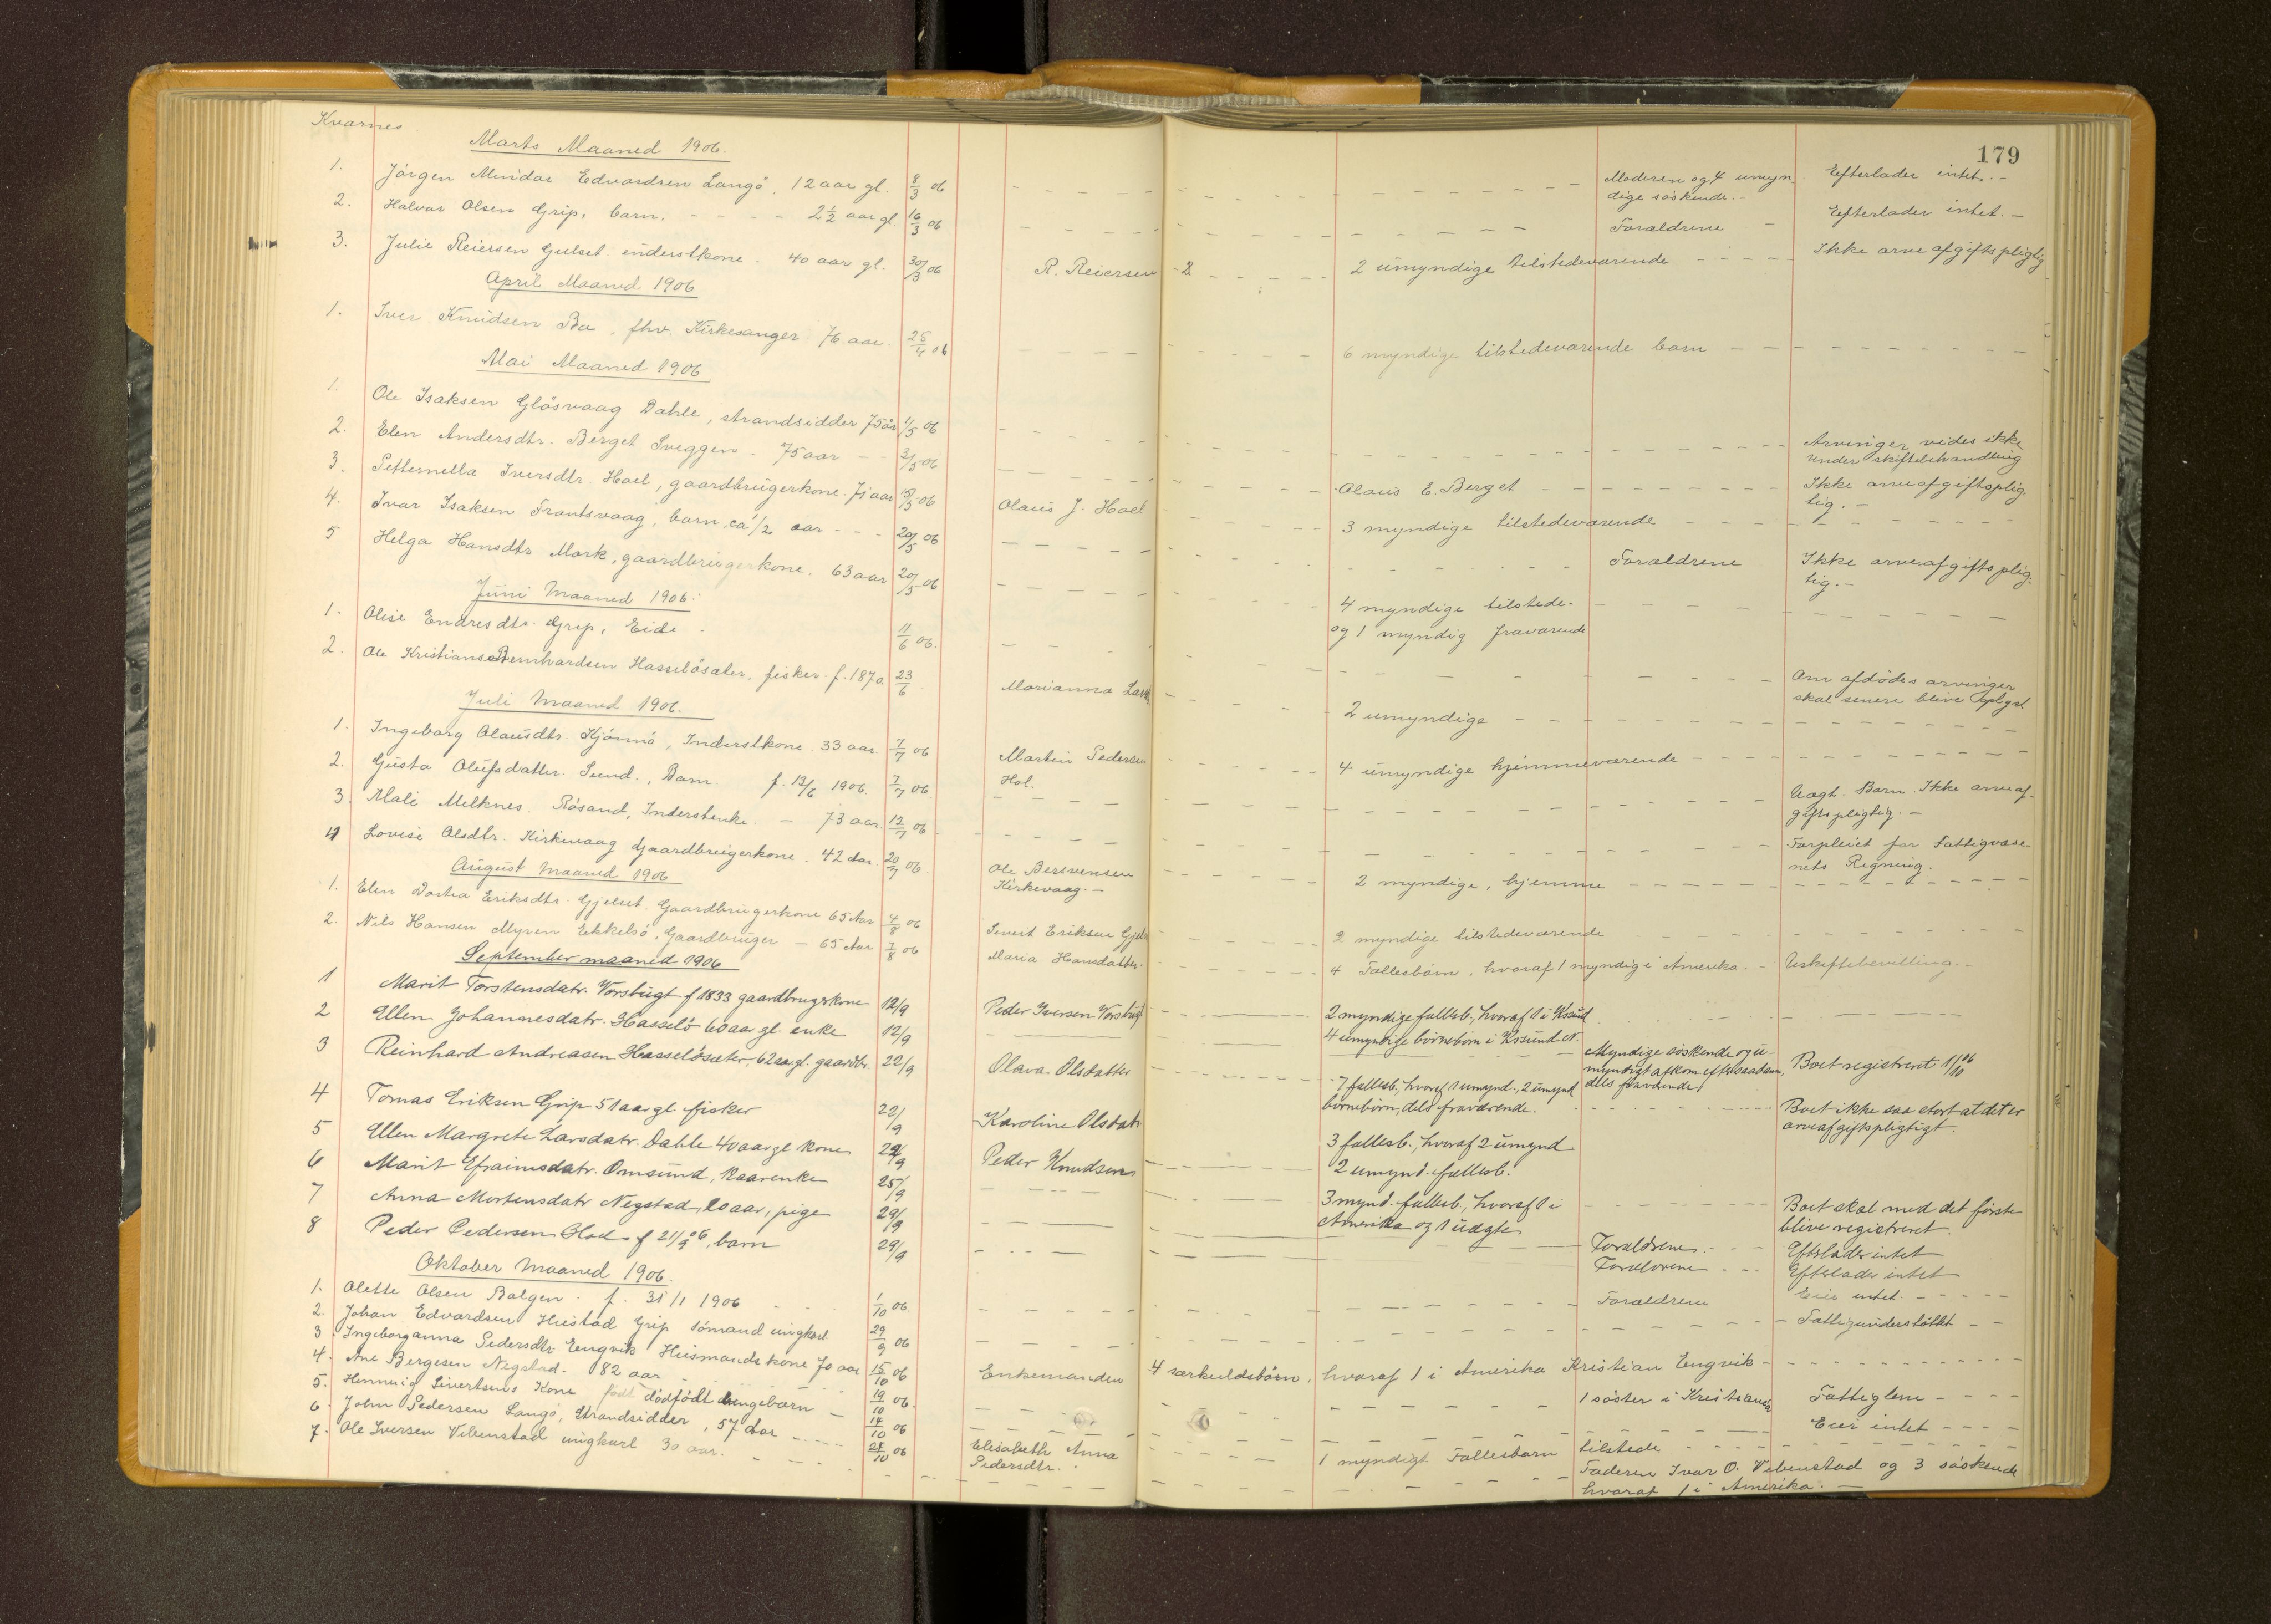 Kvarnes
179
Marts Maaned 1906.
1. Jörgen Mindor Edvardsen Langö, 12 aar gl. 8/3 06 Moderen og 4 umyn- Efterlader intet. -
dige söskende. -
2. Halvar Olsen Grip, barn. - - - - 2 1/2 aar gl 16/3 06 Forældrene - Efterlader intet. -
3. Julie Reiersen Gulset inderstkone. 40 aar gl. 30/3 06 R. Reiersen - 2 umyndige tilstedeværende - - - - Ikke arveafgiftspligtig
April Maaned 1906
1. Iver Knudsen Bø, fhv. Kirkesanger 76 aar. 25/4 06 6 myndige tilstedeværende barn - - -
Mai Maaned 1906
1. Ole Isaksen Glösvaag Dahle, strandsidder 75 år 1/5 06 Arvinger vides ikke
under skiftebehandling
2. Elen Andersdtr. Berget Sveggen. 75 aar - - 3/5 06 Olaus E. Berget - - - Ikke arveafgiftsplig-
tig. -
3. Petternella Iversdtr. Hoel, gaardbrugerkone. 71 aar 15/5 06 Olaus J. Hoel 3 myndige tilstedeværende - - -
4. Ivar Isaksen Trantsvaag, barn, ca 1/2 aar - - 20/5 06 Forældrene Ikke arveafgiftsplig-
tig. -
5 Helga Hansdtr Mork, gaardbrugerkone. 63 aar 20/5 06 4 myndige tilstede-
og 1 myndig fraværende
Juni Maaned 1906.
1. Olise Endresdtr. Grip, Eide - 11/6 06. Om afdödes arvinger
skal senere blive oplyst
2. Ole Kristiansen Bernhardsen Hasselösæter, fisker. f. 1870. 23/6. Marianna 2 umyndige - - -
Juli Maaned 1906.
1. Ingeborg Olausdtr. Kjönnö, Inderstkone. 33 aar. 7/7 06 Martin Pedersen 4 umyndige hjemmeværende - - -
Hol.
2. Gusta Olufsdatter. Sund., Barn. f. 13/6 1906. 7/7 06. Uægt. Barn. Ikke arveaf-
giftspligtig. -
3. Mali Melknes. Rösand, Inderstenke. - 73 aar. 12/7 06 Forpleiet for Fattigvæse-
nets Regning.
4 Lovise Olsdtr. Kirkevaag Gaardbrugerkone. 42 Aar. 20/7 06. Ole Bersvensen 2 myndige, hjemme - - -
Kirkevaag. -
August Maaned 1906
1. Elen Dortea Eriksdtr. Gjelset. Gaardbrugerkone 65 Aar 4/8 06 Sivert Eriksen 2 myndige tilstedeværende - - -
2. Nils Hansen Myren Ekkelsö. Gaardbruger - 65 Aar 7/8 06 Maria Hansdatter. 4 Fællesbörn, hvoraf 1 myndig i Amerika. - Uskiftebevilling. -
September maaned 1906
1 Marit Torstensdatr. Vorsbugt f 1833 gaardbrugerkone 12/9 Peder Iversen 2 myndige fællesb., hvoraf 1 i Kssund
2 Ellen Johannesdatr. Hasselö 60 aar gl. enke 12/9 4 umyndige börnebörn i Kssund N.
3 Reinhard Andreasen Hasselösæter, 62 aar gl. gaardbr. 22/9 Olava Olsdatter Myndige söskende og u-
myndigt afkom efter saadan,
dels fraværende Boet registreret 1/10 06
4 Tomas Eriksen Grip 51 aar gl. fisker 22/9 Karoline Olsdatr 7 fællesb, hvoraf 1 umynd., 2 umynd
börnebörn, dels fraværende. Boet ikke saa stort at det er
arveafgiftspligtigt.
5 Ellen Margrete Larsdatr. Dahle 40 aar gl kone 24/9 Peder Knudsen 3 fællesb., hvoraf 2 umynd
2 umynd. fællesb.
6 Marit Efraimsdatr. Omsund, kaarenke 25/9 3 mynd. fællesb., hvoraf 1 i
Amerika og 1 uægte Boet skal med det förste
blive registreret.
7 Anna Mortensdatr Negstad, 20 aar, pige 29/9 Forældrene. - Efterlader intet
8 Peder Pedersen Hoel f 21/9 06, barn 29/9 Forældrene - - Efterlader intet
Oktober Maaned 1906.
1. Olette Olsen Bolgen. f. 31/1 1906 1/10 06 Forældrene Eier intet. - - -
2. Johan Edvardsen Hustad Grip sömand ungkarl 29/9 06 Fattigunderstöttet - -
3. Ingeborganna Pedersdtr Engvik Husmandskone 70 aar 15/10 06 Enkemanden 4 særkuldsbörn, hvoraf 1 i Amerika Kristian Engvik -
4. Ane Bergesen Negstad. 82 aar 19/10 06. 1 söster i Kristiansd Fattiglem - - -
5. Hennuig Sivertsens Kone födt dödfödt drengebarn - 14/10 06 Eier intet - - -
6. John Pedersen Langö, Strandsidder, 57 Aar - - - 28/10 06 Elisabeth Anna 1 myndigt Fællesbarn tilstede - - -
Pedersdtr.
7. Ole Iversen Vebenstad ungkarl 30 aar. Faderen Ivar O. Vebenstad og 3 söskende
hvoraf 1 i Amerika. -